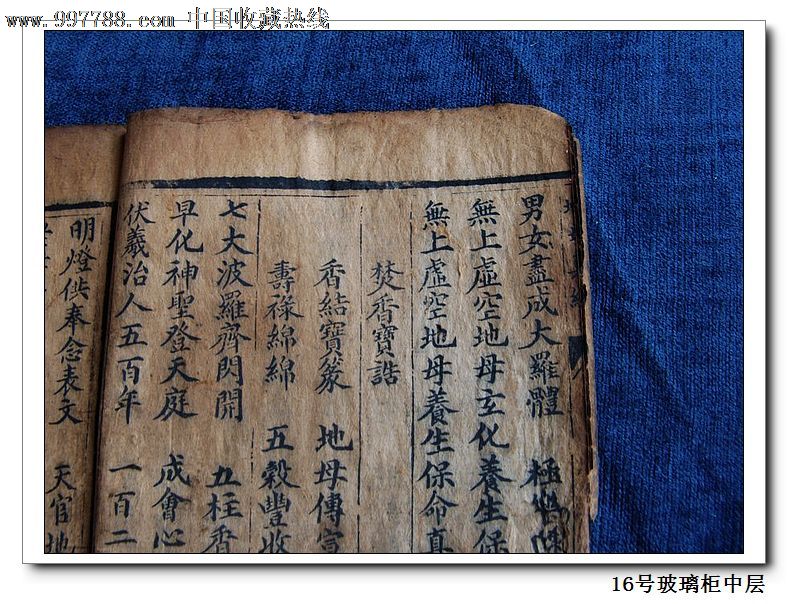 www.997788.com 中国收藏热线
男女盡成大羅體
無上虛空地母玄化養生保
無上虛空地母養生保命真
焚香寶誥
香結寶篆 地母傳宣
壽祿綿綿 五穀豐收
七大波羅齊閃開 五柱香
早化神聖登天庭 成會心
伏羲治人五百年 一百二
明燈供奉念表文 天官地
16号玻璃柜中层